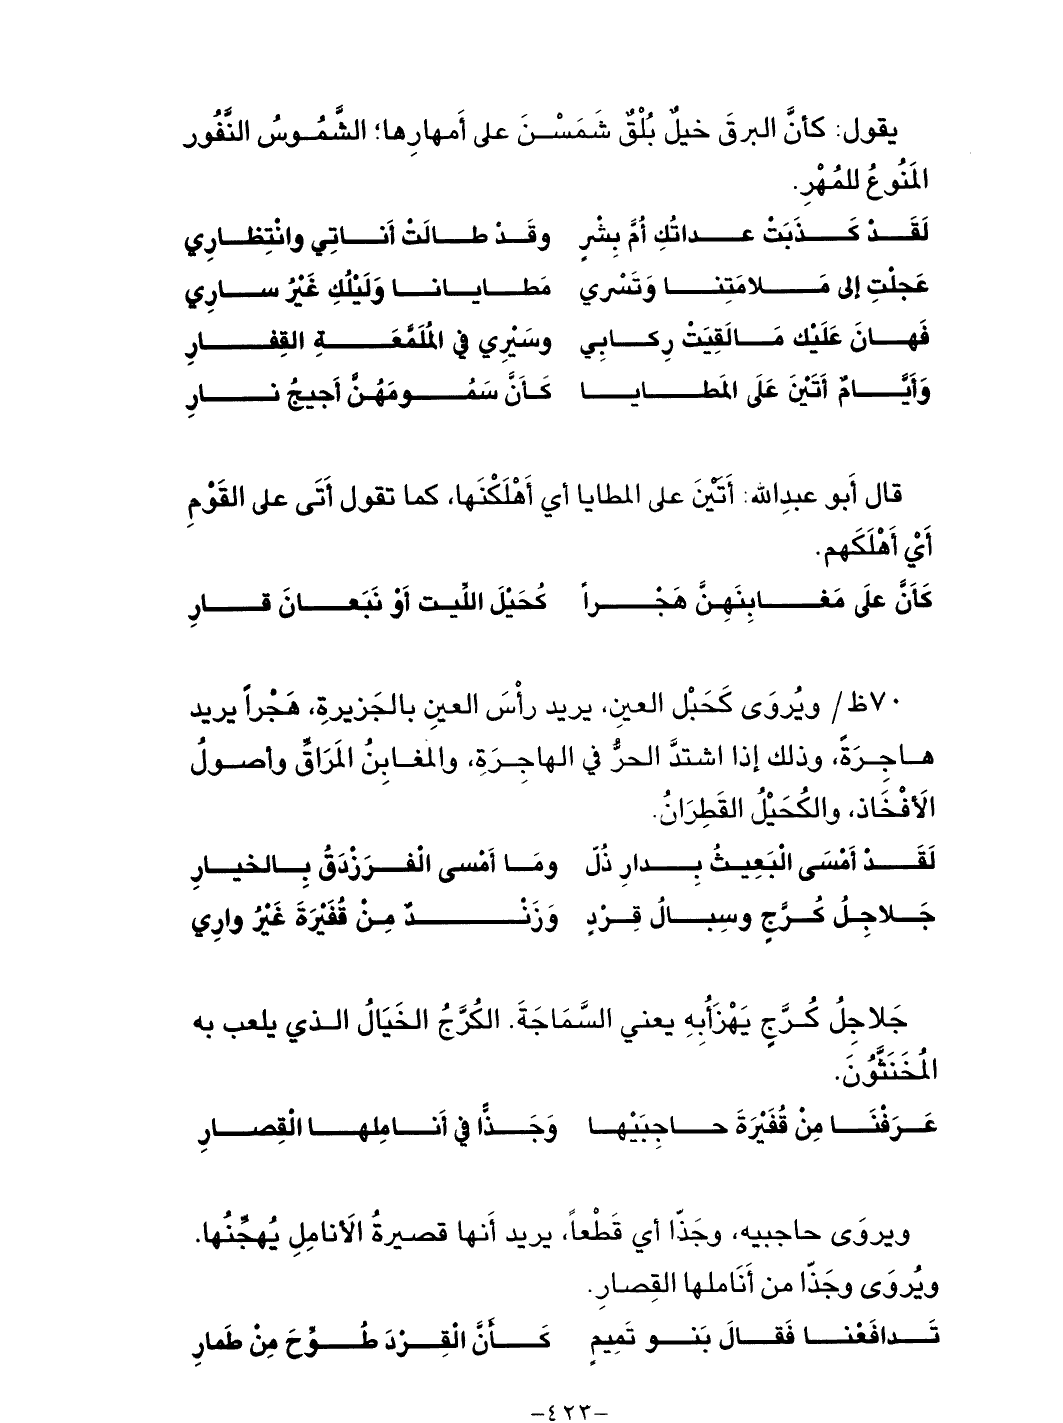 يقول: كأنَّ البرقَ خيلٌ بُلْقٌ شَمَسْنَ على أَمهارِها؛ الشَّمُوسُ النَّفُور
المَنُوعُ للمُهْرِ.
لَقَدْ كَذَبَتْ عداتُكِ أُمَّ بِشْرٍ وقَدْ طالَتْ أَناتِي وانْتِظارِي
عَجلْتِ إلى مَلامَتِنا وَتَسْري مَطايانا وَلَيْلُكِ غَيْرُ سارِي
فَهانَ عَلَيْك مَالَقِيَتْ رِكابِي وسَيْرِي في المُلَمَّعَةِ القِفارِ
وَأَيَّامٌ أَتَيْنَ عَلَى المَطايا كَأَنَّ سَمُومَهُنَّ أَجيجُ نارِ
قال أَبو عبدِالله: أَتَيْنَ على المطايا أي أَهْلَكْنَها، كما تقول أَتَى على القَوْمِ
أَيْ أَهْلَكَهم.
كَأَنَّ علَى مَغابِنَهِنَّ هَجْراً كُحَيْلَ اللِّيت أَوْ نَبَعانَ قارِ
٧٠ظ/ ويُروَى كَحَبْل العينِ، يريد رأْسَ العينِ بالجَزيرةِ، هَجْراً يريد
هاجِرَةً، وذلك إذا اشتدَّ الحرُّ في الهاجِرَةِ، والمغابنُ المَرَاقُّ وأصولُ
الَأفْخَاذ، والكُحَيْلُ القَطِرَانُ.
لَقَدْ أَمْسَى الْبَعِيثُ بِدارِ ذُلّ ومَا أَمْسى الْفرَزْدَقُ بِالخيارِ
جَلاجِلُ كُرَّجٍ وسِبالُ قِرْدٍ وَزَنْدٌ مِنْ قُفَيْرَةَ غَيْرُ واري
جَلاجِلُ كُرَّجٍ يَهْزَأُبِهِ يعني السَّمَاجَةَ. الكُرَّجُ الخَيَالُ الذي يلعب به
المُخَنَثَّوُنَ.
عَرَفْنَا مِنْ قُفَيْرَةَ حاجِبَيْها وَجَذًّا في أَنامِلها الْقِصارِ
ويروَى حاجبيه، وجَذّا أي قَطْعاً، يريد أَنها قصيرةُ الَأنامِلِ يُهجِّنُها.
ويُروَى وجَذّا من أَنَاملها القِصارِ.
تَدافَعْنا فَقالَ بَنو تَمِيمٍ كَأَنَّ الْقِرْدَ طُوِّحَ مِنْ طَمارِ
-٤٢٣-